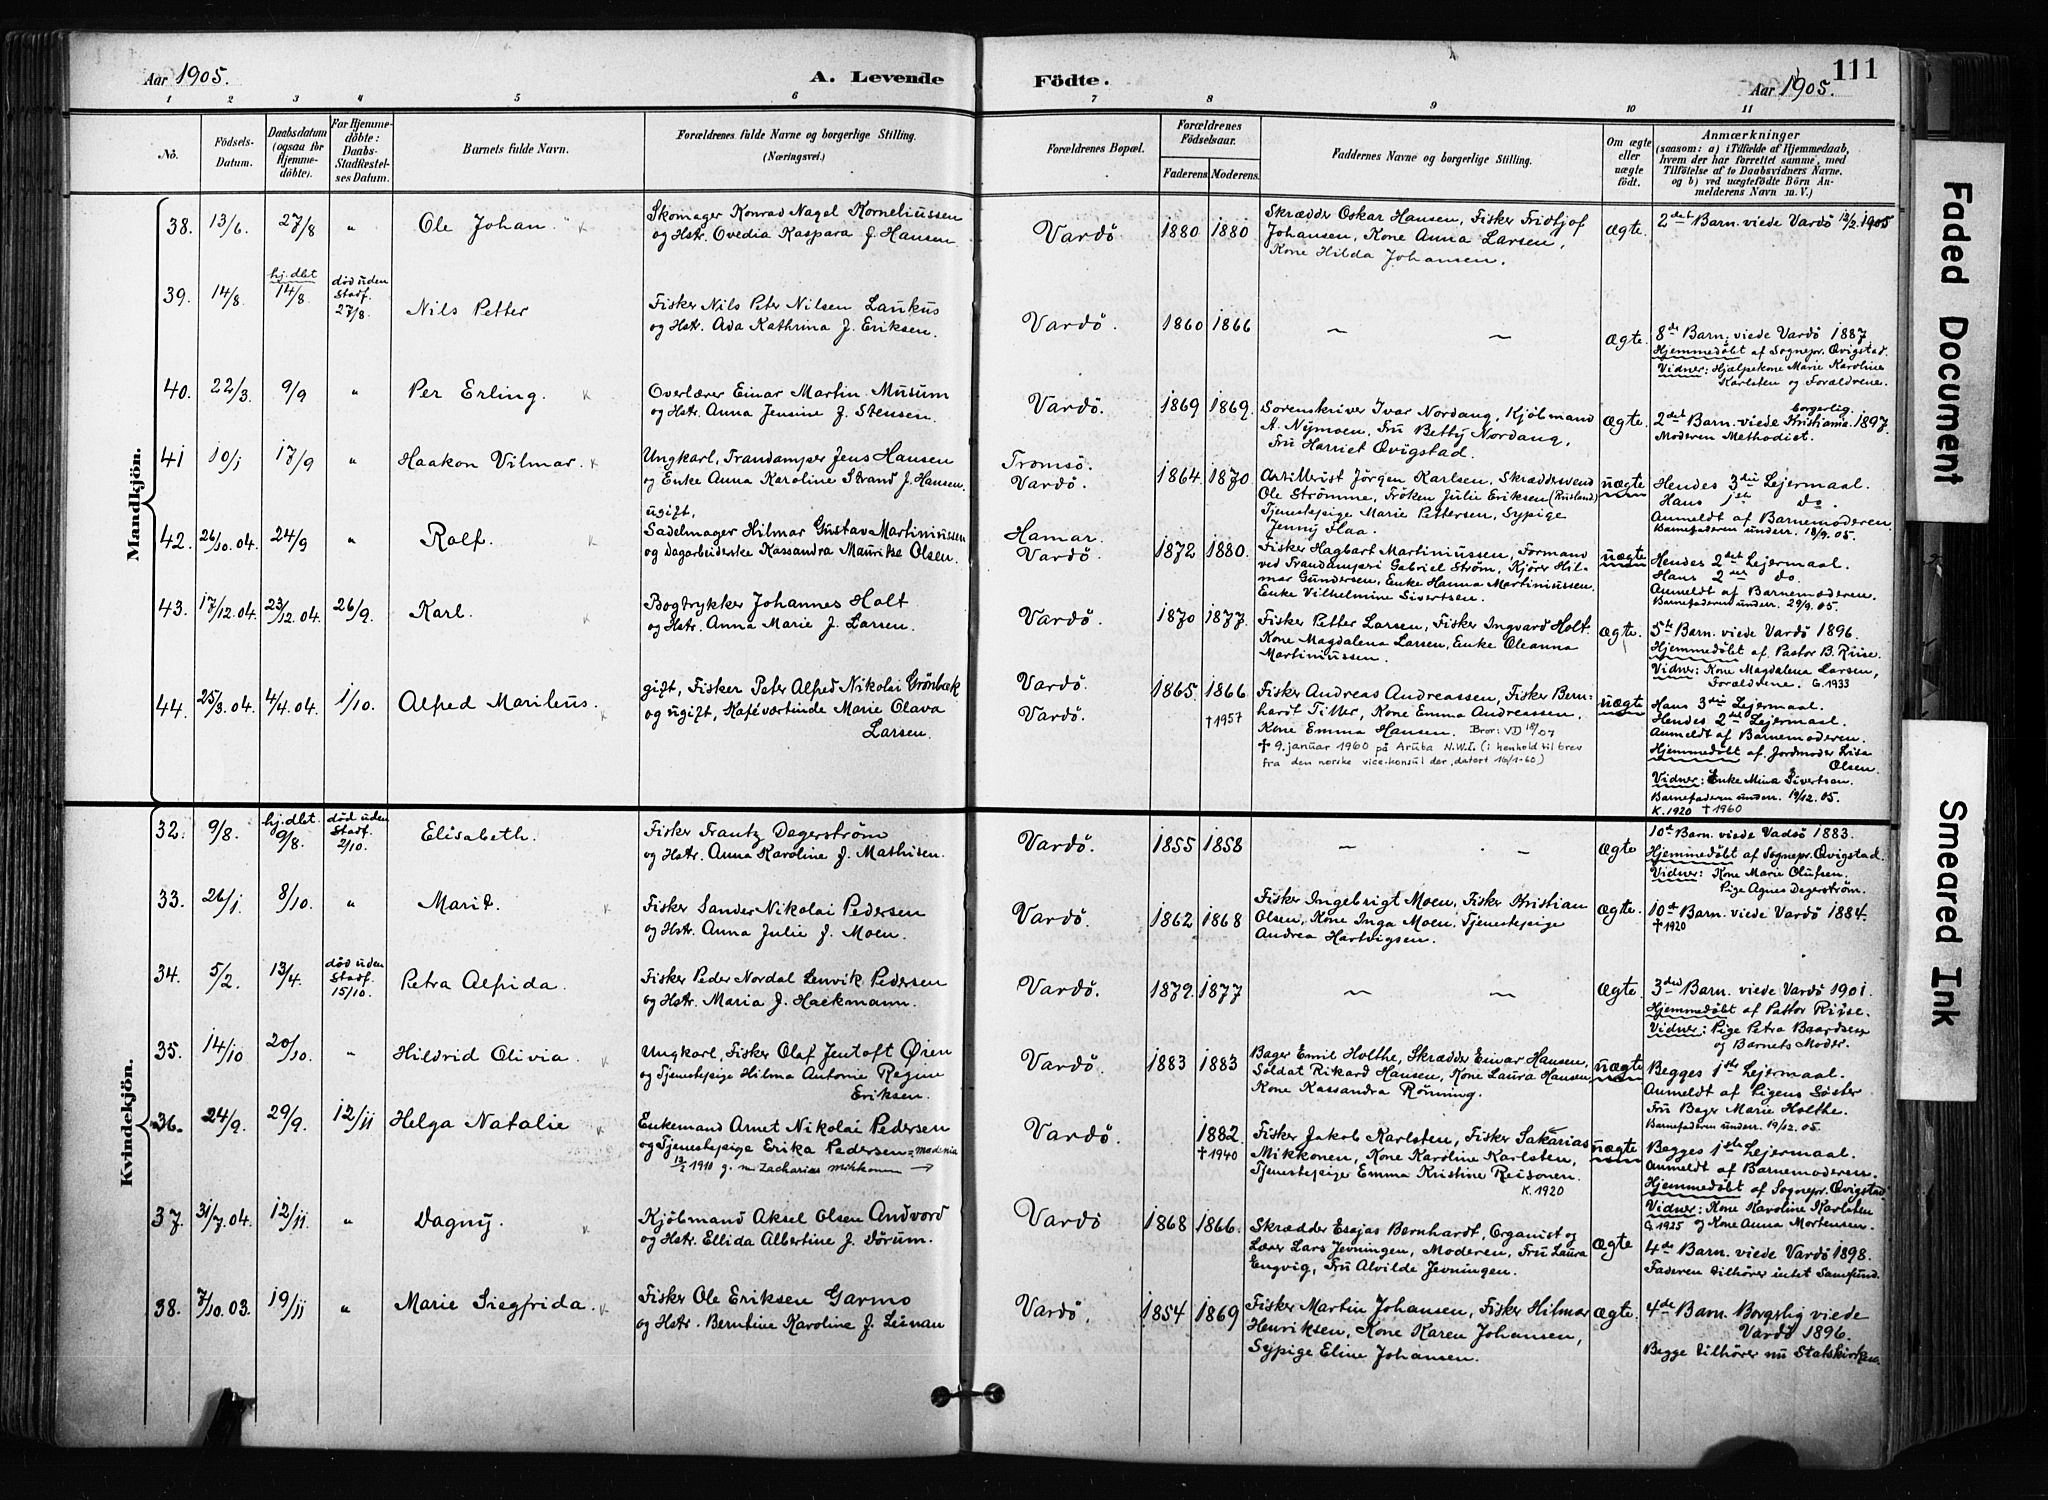 Aar 1905.
A. Levende
Födte.
111
Aar 1905.
1 2 3 4 5 6 7 8 9 10 11
No.
Födsels-Datum.
Daabsdatum (ogsaa for Hjemmedöbte).
For Hjemmedöbte: Daabs-Stadfæstelses Datum.
Barnets fulde Navn.
Forældrenes fulde Navne og borgerlige Stilling.
(Næringsvei.)
Forældrenes Bopæl.
Forældrenes Födselsaar.
Faderens. Moderens.
Faddernes Navne og borgerlige Stilling.
Om ægte eller uægte födt.
Anmærkninger
(saasom: a) i Tilfælde af Hjemmedaab, hvem der har forrettet samme, med Tilföielse af to Daabsvidners Navne, og b) ved uægtefödte Börn Anmelderens Navn m. V.)
Mandkjön.
38. 13/6. 27/8 " Ole Johan
Skomager Konrad Nagel Korneliussen
og Hstr. Ovedia Kaspara f. Hansen
Vardö 1880 1880
Skrædder Oskar Hansen, Fisker Fridtjof
Johansen, Kone Anna Larsen,
Kone Hilda Johansen.
Ægte.
2det Barn. viede Vardö 13/2. 1905
39. 14/8. hj. dbt 14/8. död uden Stadf. 27/8. Nils Petter
Fisker Nils Peter Nilsen Laukus
og Hstr. Ada Kathrina f. Eriksen.
Vardö. 1860 1866
Ægte.
8de Barn. viede Vardö 1887
Hjemmedöbt af Sognepr. Qvigstad.
Vidner: Hjælpekone Marie Karoline
Karlsten og Forældrene.
40. 22/3. 9/9 " Per Erling.
Overlærer Einar Martin Musum
og Hstr. Anna Jensine f. Stensen.
Vardö. 1869 1869.
Sorenskriver Ivar Nordang, Kjöbmand
A. Nymoen, Fru Betty Nordang,
Fru Harriet Qvigstad.
Ægte.
borgerlig.
2det Barn. viede Kristiania 1897.
Moderen Methodist.
41 10/1 17/9 " Haakon Vilmar.
Ungkarl, Trandamper Jens Hansen
og Enke Anna Karoline Strand f. Hansen.
Tromsö.
Vardö. 1864 1870
Artillerist Jörgen Karlsen, Skræddersvend
Ole Strömme, Fröken Julie Eriksen (Rusland)
Tjenestepige Marie Pettersen, Sypige
Jenny Flaa.
uægte
Hendes 3die Lejermaal.
Hans 1ste do.
Anmeldt af Barnemoderen
Barnefaderen underr. 18/9. 05.
42. 26/10. 04. 24/9 " Rolf.
ugift,
Sadelmager Hilmar Gustav Martiniussen
og Dagarbeiderske Kassandra Maurikse Olsen.
Hamar.
Vardö. 1872 1880.
Fisker Hagbart Martiniussen, Formand
ved Trandamperi Gabriel Ström, Kjörer Hil-
mar Gundersen, Enke Hanna Martiniussen
Enke Vilhelmine Sivertsen.
uægte
Hendes 2det Lejermaal.
Hans 2det do.
Anmeldt af Barnemoderen.
Barnefaderen underr. 29/9. 05.
43. 17/12. 04. 23/12. 04. 26/9. Karl.
Bogtrykker Johannes Holt
og Hstr. Anna Marie f. Larsen.
Vardö. 1870 1877.
Fisker Petter Larsen, Fisker Ingvard Holt.
Kone Magdalena Larsen, Enke Oleanna
Martiniussen.
Ægte.
5te Barn. viede Vardö 1896.
Hjemmedöbt af Pastor B. Riise.
Vidner: Kone Magdalena Larsen,
Forældrene. G. 1933
44. 25/3. 04. 4/4. 04. 1/10. Alfred Marilius.
gift, Fisker Peter Alfred Nikolai Grönbæk
og ugift, Kaféværtinde Marie Olava
Larsen.
Vardö.
Vardö. 1865 1866
†1957
Fisker Andreas Andreassen, Fisker Bern-
hardt Titter, Kone Emma Andreassen,
Kone Emma Hansen. Bror: VD 18/07
† 9. januar 1960 på Aruba N.W.I. (i henhold til brev
fra den norske vice-konsul der, datert 16/1-60)
uægte
Hans 3die Lejermaal.
Hendes 2det Lejermaal.
Anmeldt af Barnemoderen.
Hjemmedöbt af Jordmoder Lisa
Olsen.
Vidner: Enke Mina Sivertsen.
Barnefaderen underr. 19/12. 05.
K. 1920 †1960
Kvindekjön.
32. 9/8. hj. dbt. 9/8. död uden Stadf. 2/10. Elisabeth.
Fisker Frantz Degerström
og Hstr. Anna Karoline f. Mathisen.
Vardö. 1855 1858
Ægte
10de Barn. viede Vadsö 1883.
Hjemmedöbt af Sognepr. Qvigstad.
Vidner: Kone Marie Olufsen,
Pige Agnes Degerström.
33. 26/1. 8/10. " Marit.
Fisker Sander Nikolai Pedersen
og Hstr. Anna Julie f. Moen.
Vardö. 1862 1868
Fisker Ingebrigt Moen, Fisker Kristian
Olsen, Kone Inga Moen, Tjenestepige
Andrea Hartvigsen.
Ægte.
10de Barn. viede Vardö 1884.
†1920
34. 5/2. 13/4. död uden Stadf. 15/10. Petra Alfrida.
Fisker Peder Nordal Lenvik Pedersen
og Hstr. Maria f. Hackmann.
Vardö. 1879. 1877
Ægte.
3die Barn. viede Vardö 1901.
Hjemmedöbt af Pastor Riise.
Vidner: Pige Petra Baardsen
og Barnets Moder.
35. 14/10 20/10. " Hildrid Olivia.
Ungkarl, Fisker Olaf Jentoft Øien
og Tjenestepige Hilma Antonie Regine
Eriksen.
Vardö. 1883 1883
Bager Emil Holthe, Skrædder Einar Hansen,
Soldat Rikard Hansen, Kone Laura Hansen,
Kone Kassandra Rönning.
uægte
Begges 1ste Lejermaal.
Anmeldt af Pigens Söster
Fru Bager Marie Holthe.
Barnefaderen underr. 19/12. 05.
36. 24/9. 29/9. 12/11 Helga Natalie
Enkemand Arnet Nikolai Pedersen
og Tjenestepige Erika Pedersen
1910 g. m Zacharias Mikkonen →
Vardö. 1882.
†1940
Fisker Jakob Karlsten, Fisker Sakarias
Mikkonen, Kone Karoline Karlsten,
Tjenestepige Emma Kristine Reisonen.
K. 1920
uægte
Begges 1ste Lejermaal.
Anmeldt af Barnemoderen.
Hjemmedöbt af Sognepr. Qvigstad.
Vidner: Kone Karoline Karlsten
G. 1925 og Kone Anna Mortensen.
37. 31/7. 04. 12/11. " Dagny.
Kjöbmand Aksel Olsen Andvord
og Hstr. Ellida Albertine f. Dörum.
Vardö 1868 1866.
Skrædder Esajas Bernhardt, Organist og
Lærer Lars Jevningen, Moderen, Fru Laura
Engvig, Fru Alvilde Jevningen.
Ægte
4de Barn. viede Vardö 1898.
Faderen tilhörer intet Samfund.
38. 7/10. 03. 19/11 " Marie Siegfrida.
Fisker Ole Eriksen Garmo
og Hstr. Berntine Karoline f. Lisnau
Vardö. 1854 1869
Fisker Martin Johansen, Fisker Hilmar
Henriksen, Kone Karen Johansen,
Sypige Eline Johansen.
Ægte.
4de Barn. Borgerlig viede
Vardö 1896.
Begge tilhörer nu Statskirken.
Faded Document
Smeared Ink